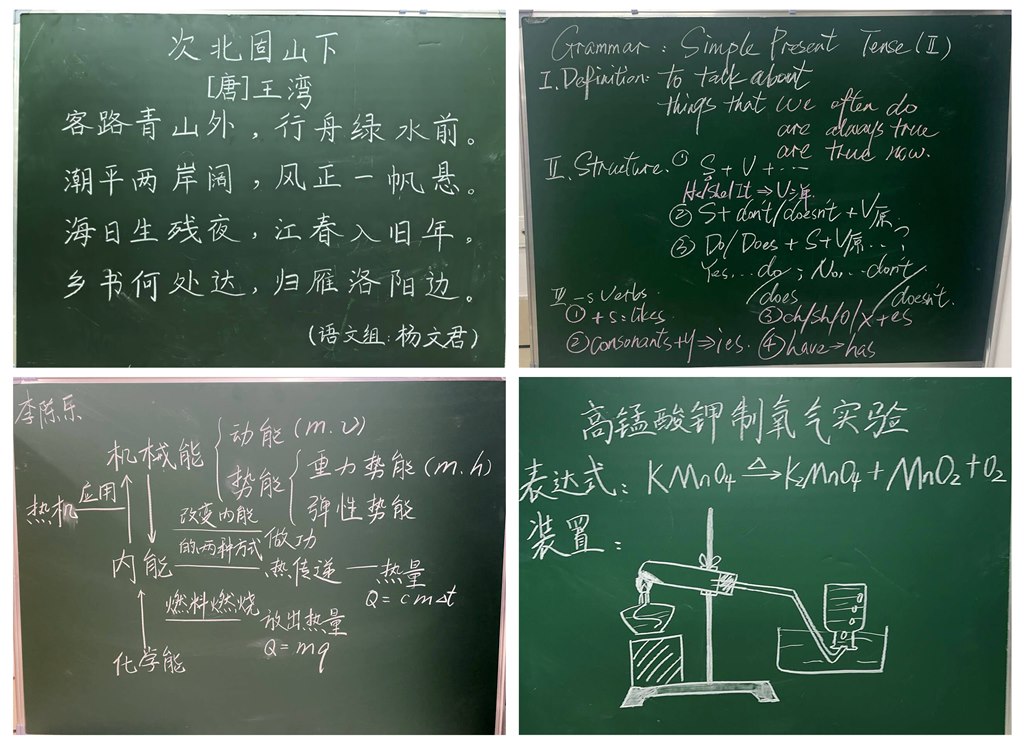 次北固山下
[唐]王湾
客路青山外，行舟绿水前。
潮平两岸阔，风正一帆悬。
海日生残夜，江春入旧年。
乡书何处达，归雁洛阳边。
(语文组:杨文君)
Grammar: Simple Present Tense(Ⅱ)
Ⅰ. Definition: to talk about
things that we often do
are always true
are true now.
Ⅱ. Structure. ① S + V + ...
He/She/It ⇒ V三单
② S + don't/doesn't + V原.
③ Do/Does + S + V原...?
Yes,...do ; No,...don't
/does /doesn't.
Ⅳ -s Verbs.
① +s: likes. ③ ch/sh/o/x + es
② consonants+y ⇒ ies. ④ have → has
李陈乐
机械能
动能 (m.v)
势能
重力势能 (m.h)
弹性势能
热机 应用
改变内能
的两种方式
做功
内能 热传递 — 热量
Q = cm△t
燃料燃烧
放出热量
Q = mq
化学能
高锰酸钾制氧气实验
表达式: KMnO4 △→ K2MnO4 + MnO2 + O2
装置: